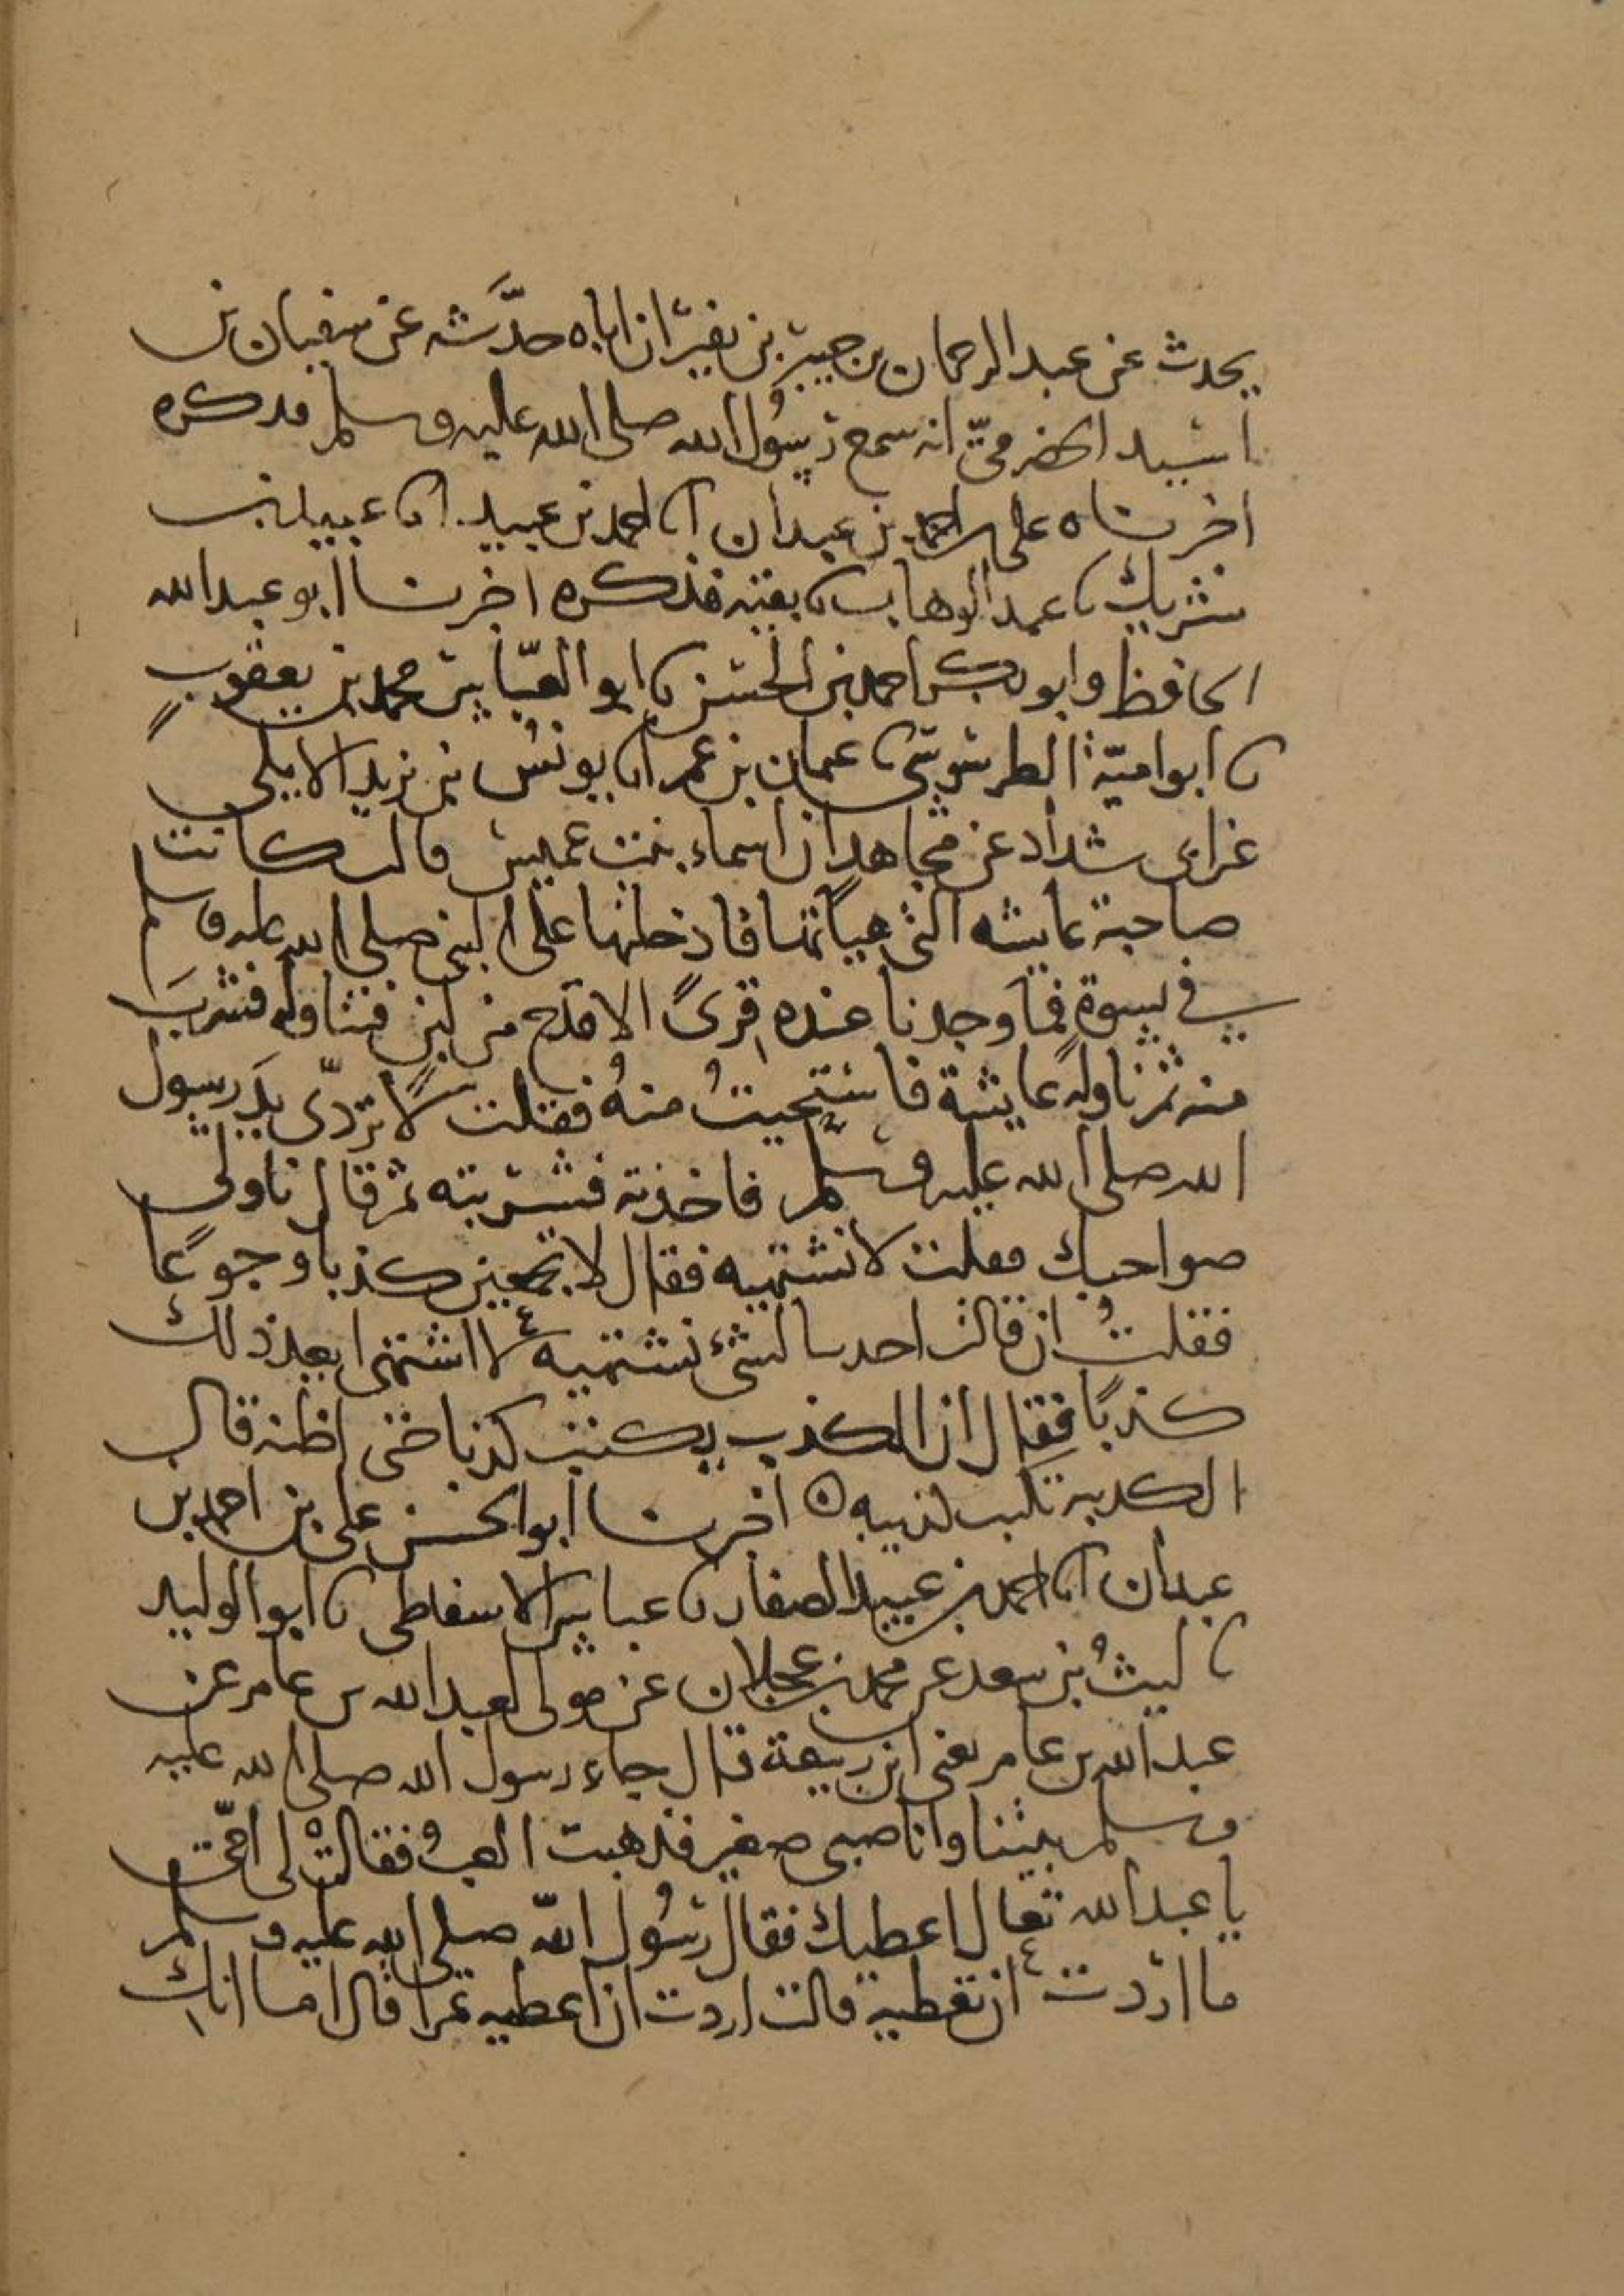 يحدث عن عبد الرحمان بن جبير بن نفير ان اباه حدَّثه عن سفيان بن
اسيد الحضرميّ انه سمع رسُول الله صلى الله عليه وسلم فدكره
اخرناه على بن احمد بن عبدان انا احمد بن عبيد انا عبيد بن
شريك نا عبد الوهاب نا بقية فذكره اخرنا ابو عبد الله
الحافظ وابو بكر احمد بن الحسن نا ابو العبّاس محمد بن يعقوب
نا ابو اميّة الطرسوسيّ نا عمان بن عمر انا يونس بن يزيد الايلي
عن ابى شداد عن مجاهد ان اسماء بنت عميس قالت كانت
صاحبة عايشه التى هيأتها فادخلتها على النبي صلى الله عليه وسلم
في نسوة فما وجدنا عنده قرىً الا قدح من لبن فتناوله فشربَ
منه ثم ناوله عايشة فاستحيتُ منهُ فقلت لا تردّى يدَ رسول
الله صلى الله عليه وسلم فاخذته فشربته ثم قال ناولى
صواحبك فقلت لا نشتهيه فقال لا تجمعين كذبا وجوعًا
فقلتُ ان قالت احدنا لشئ نشتهيه لا اشتهى ايعد ذلك
كذبًا فقال ان الكذب يكتب كذبا حتى اظنه قال
الكدبه تكتب كذيبه ه اخرنا ابو الحسن على بن احمد بن
عبدان انا احمد بن عبيد الصفار نا عباس الاسفاطى نا ابو الوليد
نا ليثُ بن سعد عن محمد بن عجلان عن مولى لعبد الله بن عامر عن
عبد الله بن عامر يعنى ابن ربيعة قال جاء رسول الله صلى الله عليه
وسلم بيتنا وانا صبى صغير فذهبت العبُ فقالت لى امّى
يا عبد الله تعال اعطيك فقال رسُول الله صلى الله عليه وسلم
ما اردت ان تعطيه قالت اردت ان اعطيه تمرا قال اما انك